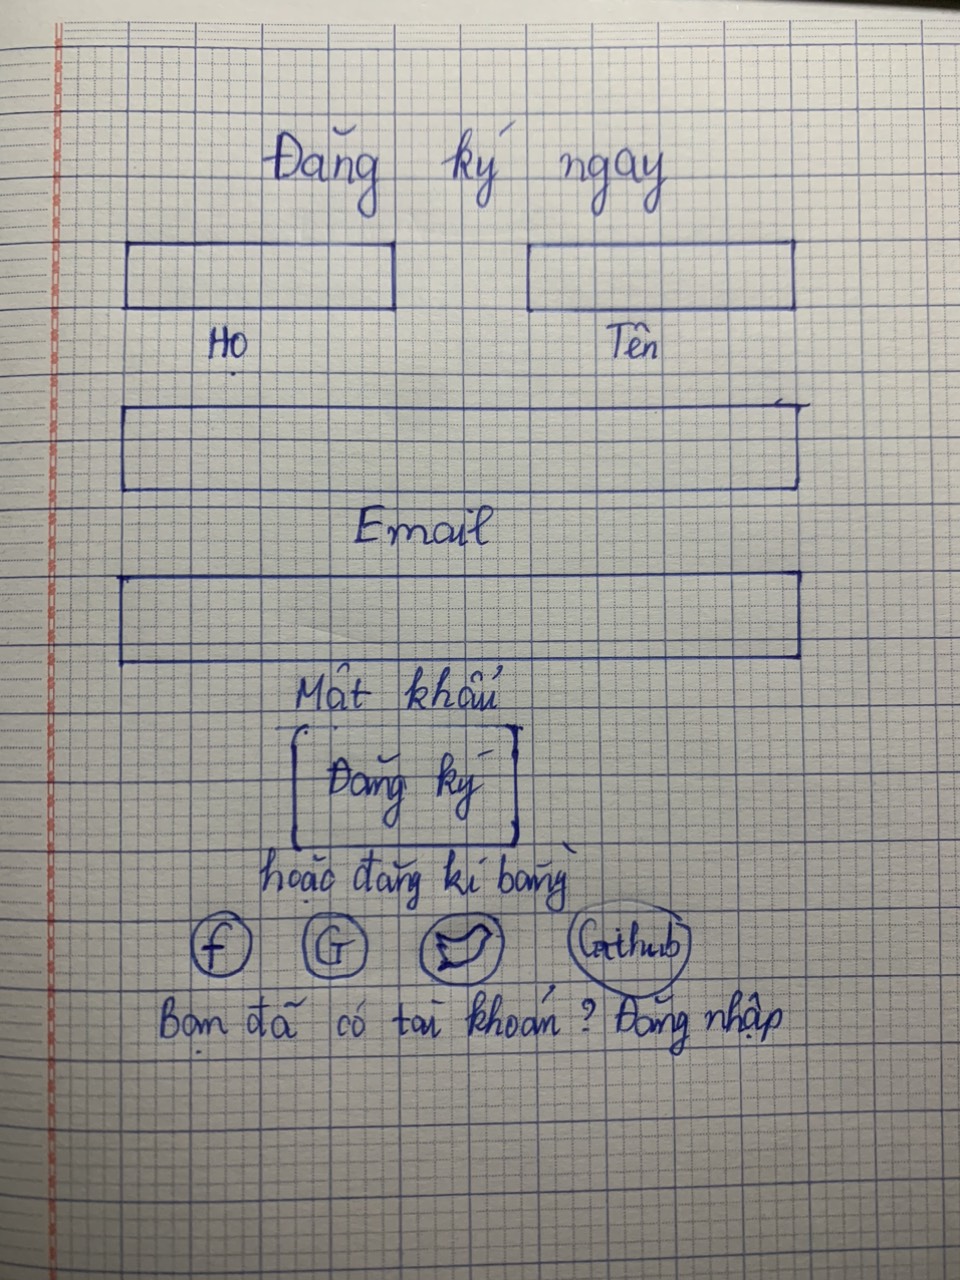 Đăng ký ngay
Họ Tên
Email
Mật khẩu
Đăng ký
hoặc đăng kí bằng
f G Github
Bạn đã có tài khoản? Đăng nhập